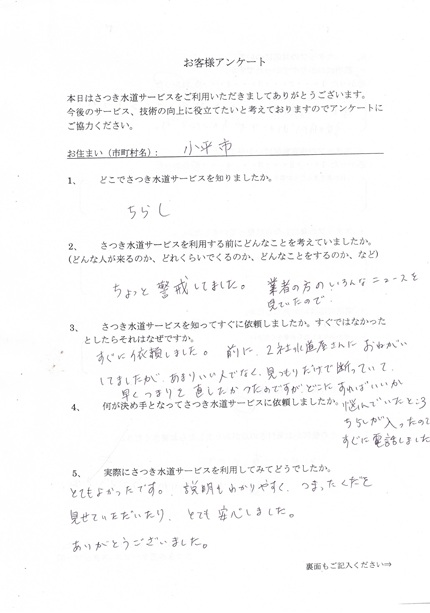 お客様アンケート
本日はさつき水道サービスをご利用いただきましてありがとうございます。
今後のサービス、技術の向上に役立てたいと考えておりますのでアンケートに
ご協力ください。
お住まい（市町村名）： 小平市
1、 どこでさつき水道サービスを知りましたか。
ちらし
2、 さつき水道サービスを利用する前にどんなことを考えていましたか。
（どんな人が来るのか、どれくらいでくるのか、どんなことをするのか、など）
ちょっと警戒してました。 業者の方のいろんなニュースを
見ていたので。
3、 さつき水道サービスを知ってすぐに依頼しましたか。すぐではなかった
としたらそれはなぜですか。
すぐに依頼しました。 前に、2社水道屋さんにおねがい
してましたが、あまりいい人でなく、見つもりだけで断っていて、
早くつまりを直したかったのですがどこにすればいいか
4、 何が決め手となってさつき水道サービスに依頼しましたか。
悩んでいたところ
ちらしが入ったので
すぐに電話しました
5、 実際にさつき水道サービスを利用してみてどうでしたか。
とてもよかったです。 説明もわかりやすく、つまったくだを
見せていただいたり、とても安心しました。
ありがとうございました。
裏面もご記入ください⇒